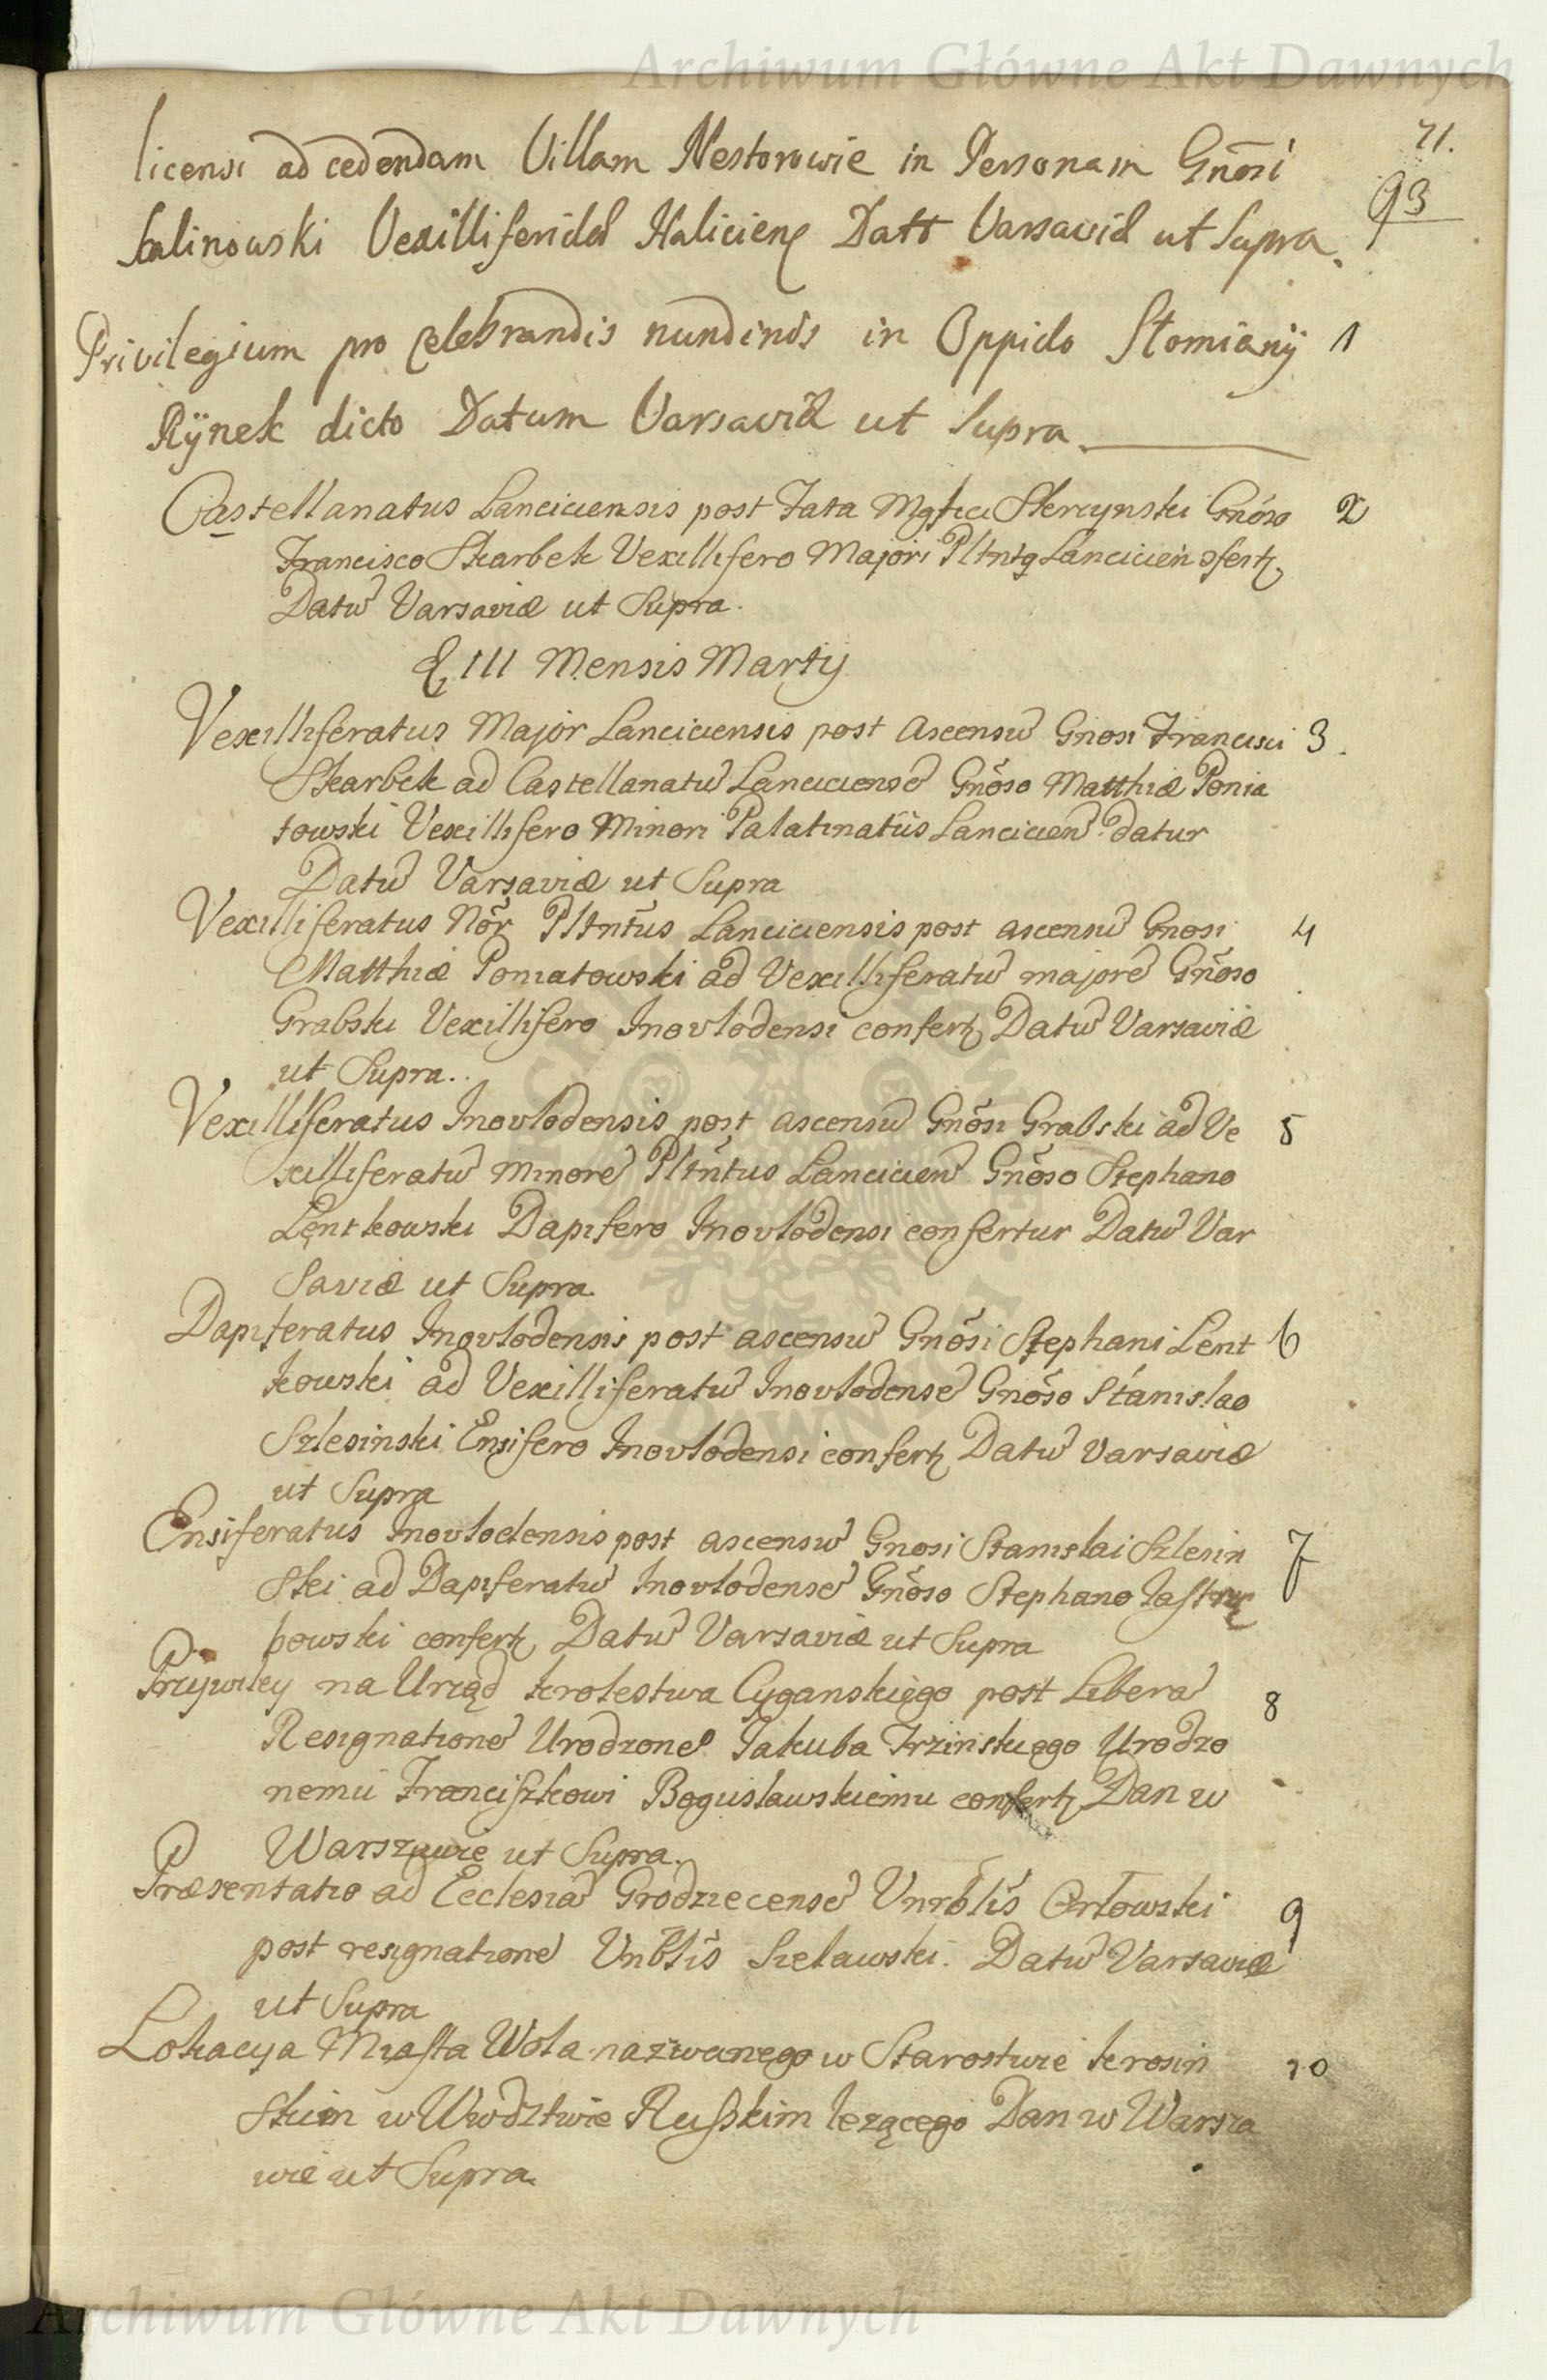 Archiwum Główne Akt Dawnych
71.
93
licensi ad cedendam Villam Nestorowie in Personam Gnosi
Kalinowski Vexilliferidæ Halicien Datt Varsaviæ ut Supra.
Privilegium pro celebrandis nundinis in Oppido Słomiany 1
Rÿnek dicto Datum Varsaviæ ut Supra
Castellanatus Lanciciensis post Fata Mgfici Skrzynski Gnoso 2
Francisco Skarbek Vexillifero Majori Pltntq Lancicien ofertz
Datū Varsaviæ ut Supra.
III Mensis Martij
Vexilliferatus Major Lanciciensis post Ascensū Gnosi Francisci 3.
Skarbek ad Castellanatū Lanciciensē Gnoso Matthiæ Ponia
towski Vexillifero Minori Palatinatus Lancicien datur
Datū Varsaviæ ut Supra
Vexilliferatus Nōr Pltntus Lanciciensis post ascensū Gnosi 4
Matthiæ Poniatowski ad Vexilliferatū majorē Gnoso
Grabski Vexillifero Inovlodensi confertz Datū Varsaviæ
ut Supra..
Vexilliferatus Inovlodensis post ascensū Gnosi Grabski ad Ve 5
xilliferatū Minorē Pltntus Lancicien Gnoso Stephano
Lentkowski Dapifero Inovlodensi confertur Datū Var
saviæ ut Supra.
Dapiferatus Inovlodensis post ascensū Gnosi Stephani Lent 6
kowski ad Vexilliferatū Inovlodensē Gnoso Stanislao
Szlesinski Ensifero Inovlodensi confertz Datū Varsaviæ
ut Supra
Ensiferatus Inovlodensis post ascensū Gnosi Stanislai Szlesin 7
ski ad Dapiferatū Inovlodensē Gnoso Stephano Jastrzę
bowski confertz Datū Varsaviæ ut Supra
Przywiley na Urząd Krolestwa Cyganskiego post Liberā 8
Resignationē Urodzonē Jakuba Trzinskiego Urodzo
nemu Franciszkowi Bogusławskiemu confertz Dan w
Warszawie ut Supra.
Præsentatio ad Ecclesiā Grodziecensē Vnrblis Orłowski 9
post resignationē Vnblis Sielawski. Datū Varsaviæ
ut Supra
Lokacya Miasta Wola nazwanego w Starostwie Krosin 10
skim w Wwodztwie Ruskim lezącego Dan w Warsza
wie ut Supra.
Archiwum Główne Akt Dawnych